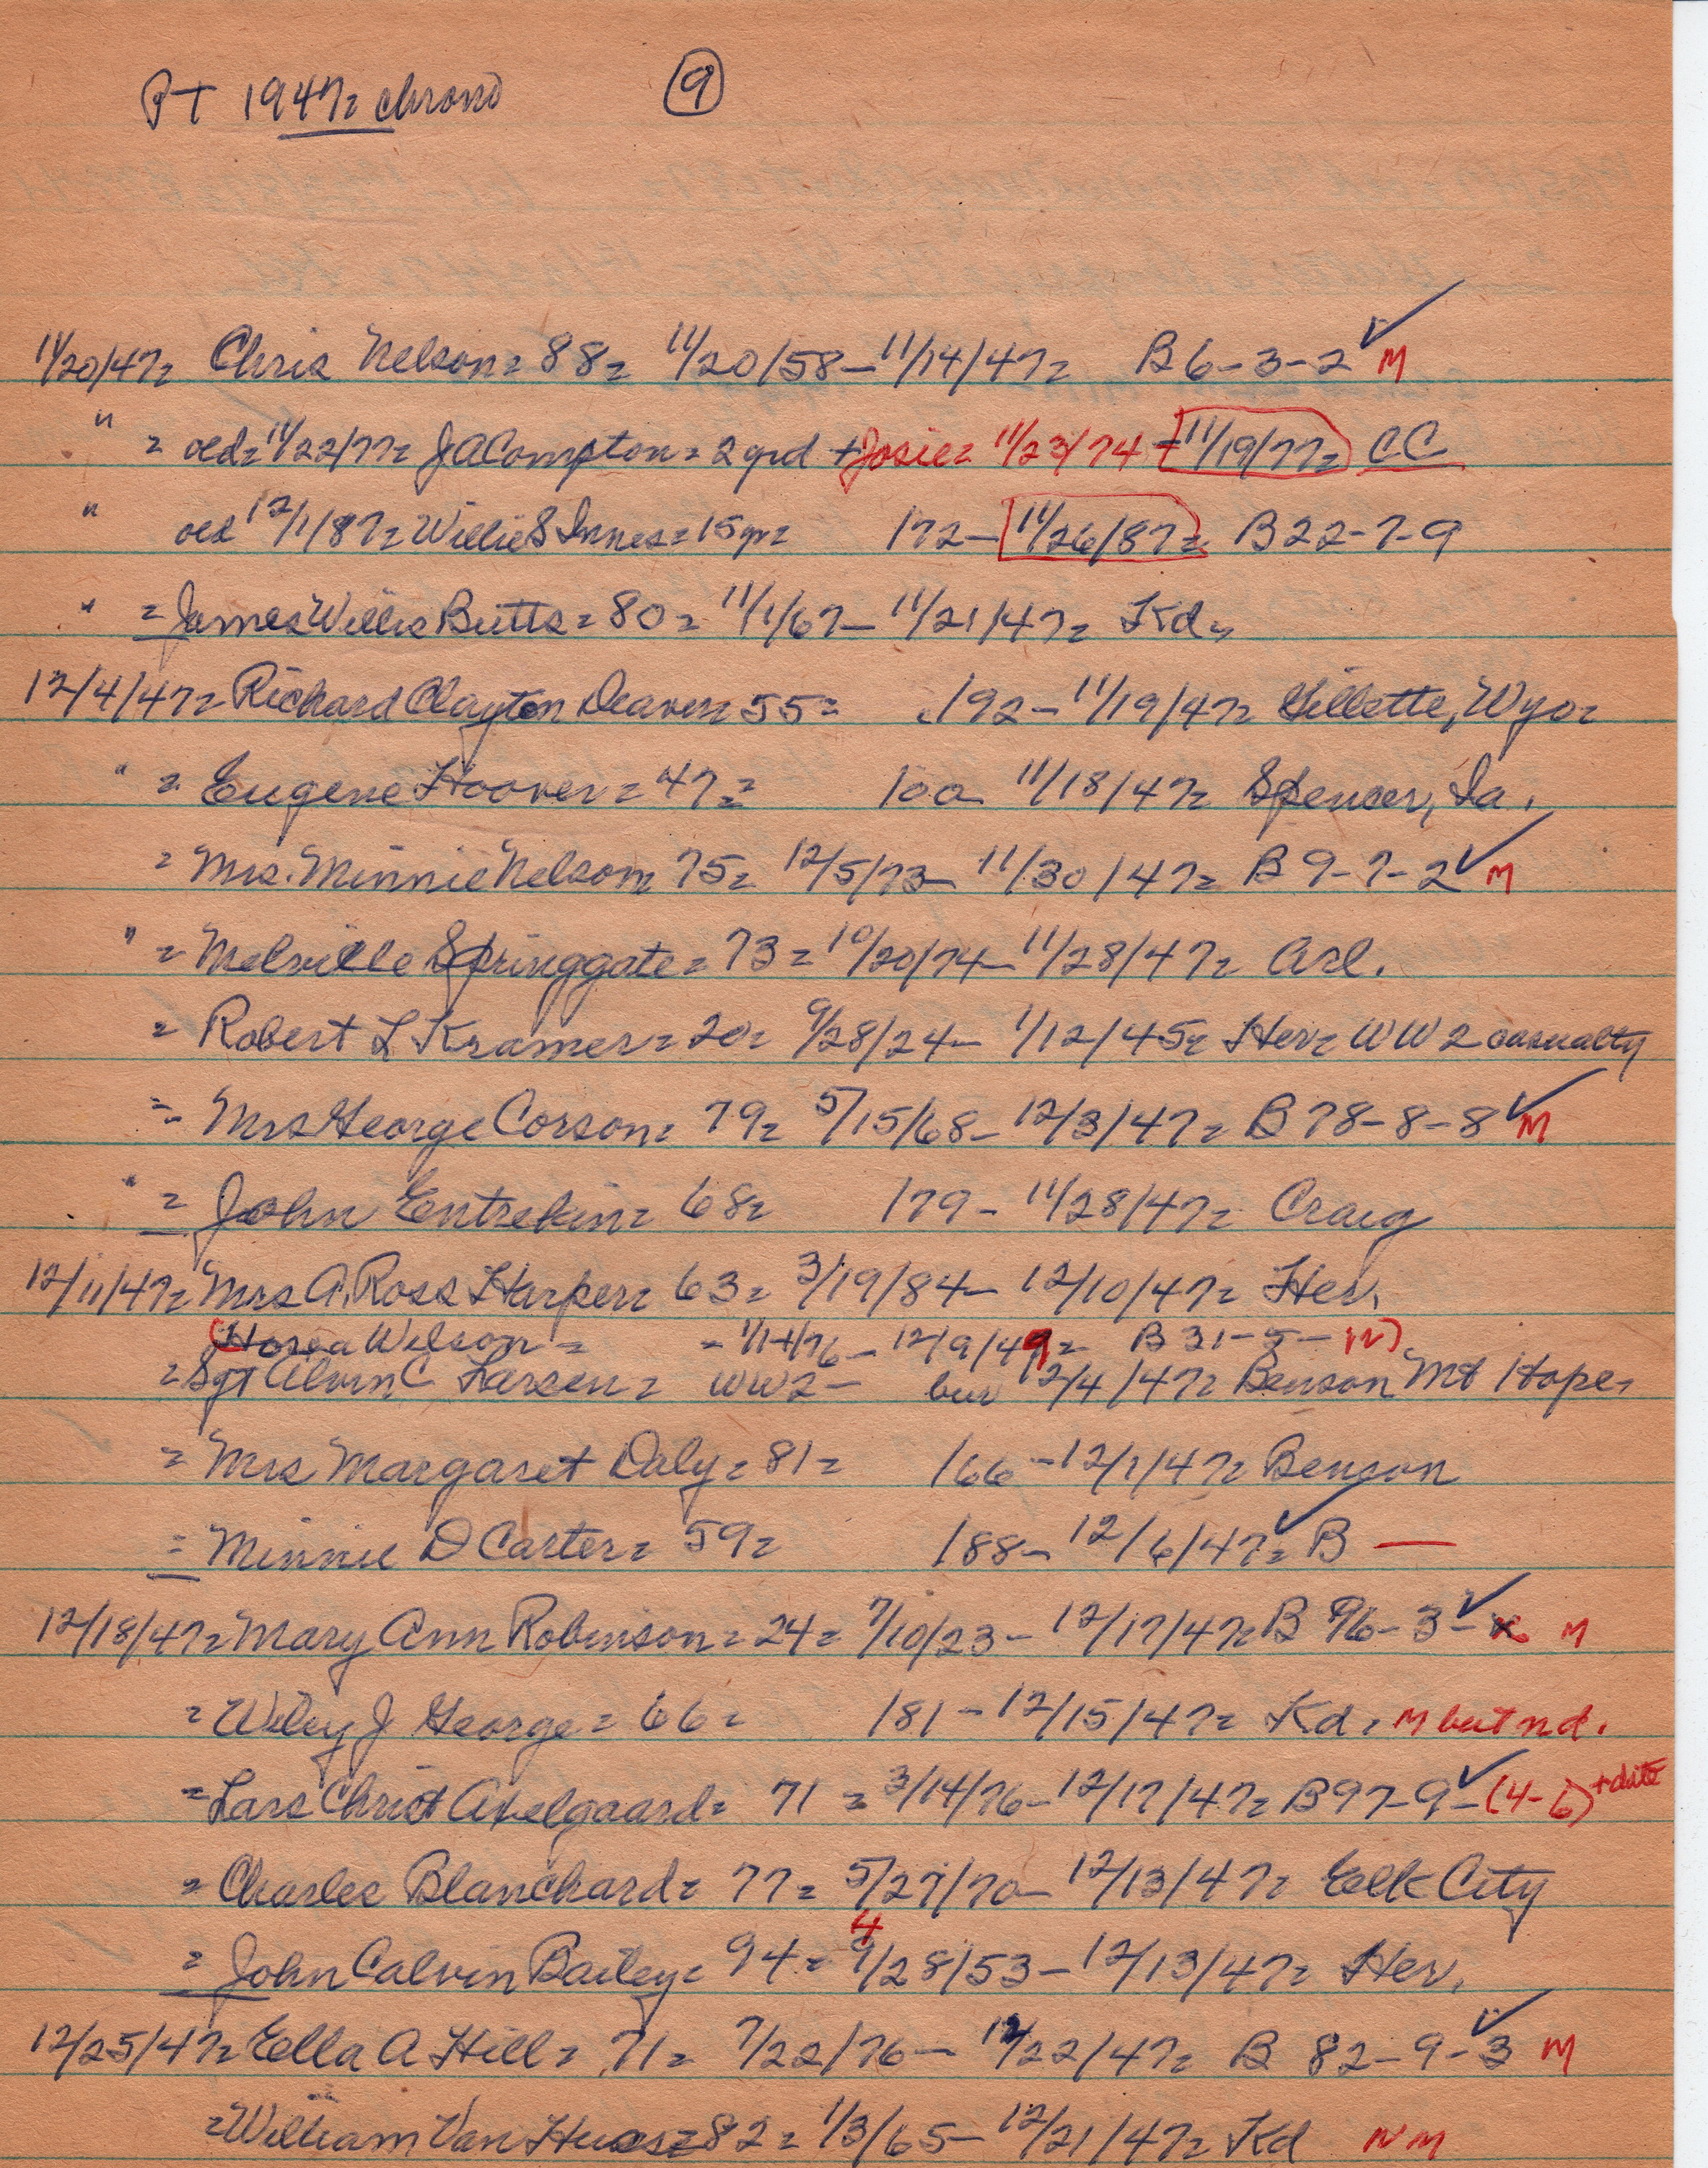 PT 1947= chrono 9
11/20/47= Chris Nelson= 88= 11/20/58-11/14/47= B 6-3-2 ✓ M
" = old= 11/22/77= J A Compton= 2 grd + Josie= 11/23/74-11/19/77= CC
" old 12/1/87= Willie S Innes= 15 yr= 172-11/26/87= B 22-7-9
" = James Willis Butts= 80= 11/1/67-11/21/47= Kd.
12/4/47= Richard Clayton Deaver= 55= 192-11/19/47= Gillette, Wyo=
" = Eugene Hoover= 47= 100- 11/18/47= Spencer, Ia.
= Mrs. Minnie Nelson= 75= 12/5/73- 11/30/47= B 9-7-2 ✓ M
" = Melville Springgate= 73= 10/20/74-11/28/47= Arl.
= Robert L Kramer= 20= 9/28/24- 1/12/45= Her= WW2 casualty
= Mrs George Corson= 79= 5/15/68- 12/3/47= B 78-8-8 ✓ M
" = John Entrekin= 68= 179- 11/28/47= Craig
12/11/47= Mrs A. Ross Harper= 63= 3/19/84- 12/10/47= Her.
(Hosea Wilson= - 1/14/76- 12/9/49= B 31-5-
= Sgt Alvin C Larsen= WW2- bur 12/4/47= Benson Mt Hope.
= Mrs Margaret Daly= 81= 166-12/1/47= Benson
= Minnie D Carter= 59= 188- 12/6/47= ✓ B —
12/18/47= Mary Ann Robinson= 24= 7/10/23- 12/17/47= B 96-3- ✓ M
= Wiley J George= 66= 181-12/15/47= Kd. M but nd.
= Lars Christ Axelgaard= 71 = 3/14/76-12/17/47= B 97-9- ✓ (4-6) + date
= Charles Blanchard= 77= 5/27/70- 12/13/47= Elk City
4
= John Calvin Bailey= 94= 9/28/53- 12/13/47= Her.
12/25/47= Ella A Hill= 71= 7/22/76- 12/22/47= B 82-9-3 ✓ M
= William Van Huss= 82= 1/3/65- 12/21/47= Kd NM